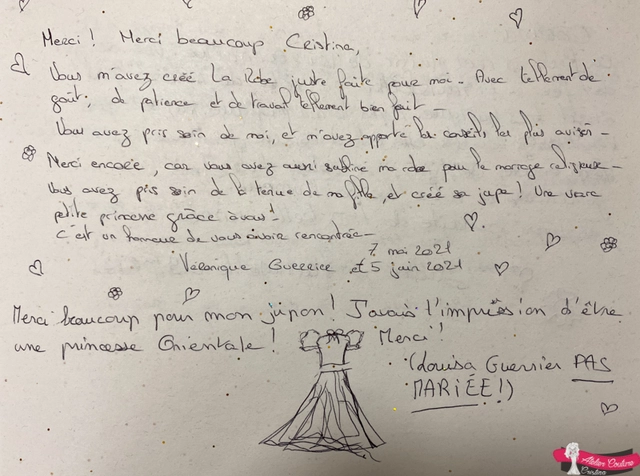 Merci ! Merci beaucoup Cristina,
Vous m'avez créé La Robe juste faite pour moi - Avec tellement de
goût, de patience et de travail tellement bien fait -
Vous avez pris soin de moi, et m'avez apporté les conseils les plus avisés -
Merci encore, car vous avez aussi sublimé ma robe pour le mariage religieux -
Vous avez pris soin de la tenue de ma fille, et créé sa jupe ! Une vraie
petite princesse grâce à vous !
C'est un honneur de vous avoir rencontrée -
7 mai 2021
Véronique Guerrier et 5 juin 2021
Merci beaucoup pour mon jupon ! J'avais l'impression d'être
une princesse Orientale ! Merci !
(Louisa Guerrier PAS
MARIÉE !)
Atelier Couture